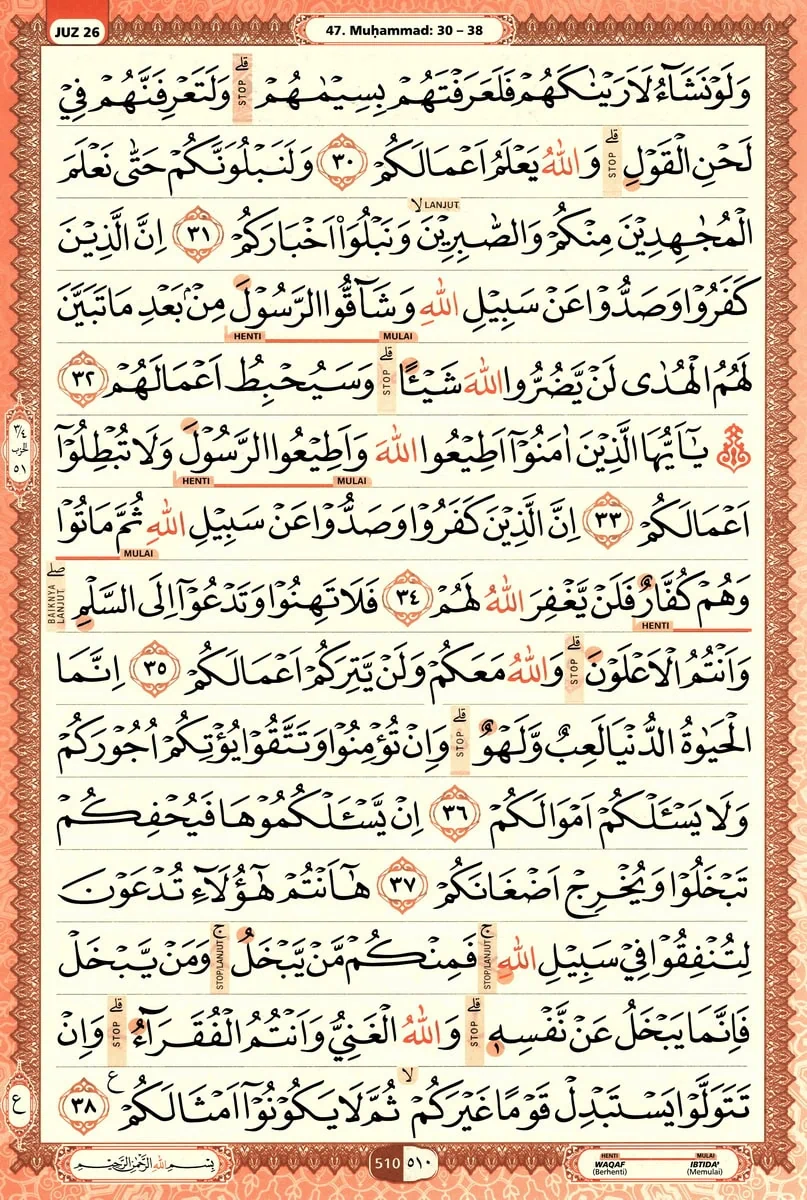 JUZ 26
47. Muḥammad: 30 – 38
وَلَوْ نَشَاۤءُ لَاَرَيْنٰكَهُمْ فَلَعَرَفْتَهُمْ بِسِيْمٰهُمْ ۗ STOP وَلَتَعْرِفَنَّهُمْ فِيْ
لَحْنِ الْقَوْلِ ۗ STOP وَاللّٰهُ يَعْلَمُ اَعْمَالَكُمْ ٣٠ وَلَنَبْلُوَنَّكُمْ حَتّٰى نَعْلَمَ
الْمُجٰهِدِيْنَ مِنْكُمْ وَالصّٰبِرِيْنَ ۙ LANJUT وَنَبْلُوَا۟ اَخْبَارَكُمْ ٣١ اِنَّ الَّذِيْنَ
كَفَرُوْا وَصَدُّوْا عَنْ سَبِيْلِ اللّٰهِ وَشَاۤقُّوا الرَّسُوْلَ مِنْۢ بَعْدِ مَا تَبَيَّنَ
MULAI HENTI
لَهُمُ الْهُدٰى لَنْ يَّضُرُّوا اللّٰهَ شَيْـًٔا ۗ STOP وَسَيُحْبِطُ اَعْمَالَهُمْ ٣٢
٣/٤ الحزب ٥١
۞ يٰٓاَيُّهَا الَّذِيْنَ اٰمَنُوْٓا اَطِيْعُوا اللّٰهَ وَاَطِيْعُوا الرَّسُوْلَ وَلَا تُبْطِلُوْٓا
MULAI HENTI
اَعْمَالَكُمْ ٣٣ اِنَّ الَّذِيْنَ كَفَرُوْا وَصَدُّوْا عَنْ سَبِيْلِ اللّٰهِ ثُمَّ مَاتُوْا
MULAI
وَهُمْ كُفَّارٌ فَلَنْ يَّغْفِرَ اللّٰهُ لَهُمْ ٣٤ فَلَا تَهِنُوْا وَتَدْعُوْٓا اِلَى السَّلْمِ ۖ BAIKNYA LANJUT
HENTI
وَاَنْتُمُ الْاَعْلَوْنَ ۗ STOP وَاللّٰهُ مَعَكُمْ وَلَنْ يَّتِرَكُمْ اَعْمَالَكُمْ ٣٥ اِنَّمَا
الْحَيٰوةُ الدُّنْيَا لَعِبٌ وَّلَهْوٌ ۗ STOP وَاِنْ تُؤْمِنُوْا وَتَتَّقُوْا يُؤْتِكُمْ اُجُوْرَكُمْ
وَلَا يَسْـَٔلْكُمْ اَمْوَالَكُمْ ٣٦ اِنْ يَّسْـَٔلْكُمُوْهَا فَيُحْفِكُمْ
تَبْخَلُوْا وَيُخْرِجْ اَضْغَانَكُمْ ٣٧ هٰٓاَنْتُمْ هٰٓؤُلَاۤءِ تُدْعَوْنَ
لِتُنْفِقُوْا فِيْ سَبِيْلِ اللّٰهِ ۚ STOP/LANJUT فَمِنْكُمْ مَّنْ يَّبْخَلُ ۚ STOP/LANJUT وَمَنْ يَّبْخَلْ
فَاِنَّمَا يَبْخَلُ عَنْ نَّفْسِهٖ ۗ STOP وَاللّٰهُ الْغَنِيُّ وَاَنْتُمُ الْفُقَرَاۤءُ ۗ STOP وَاِنْ
تَتَوَلَّوْا يَسْتَبْدِلْ قَوْمًا غَيْرَكُمْ ۙ ثُمَّ لَا يَكُوْنُوْٓا اَمْثَالَكُمْ ࣖ ٣٨
ع
بِسْمِ اللّٰهِ الرَّحْمٰنِ الرَّحِيْمِ
510 ٥١٠
HENTI MULAI
WAQAF (Berhenti) IBTIDA' (Memulai)